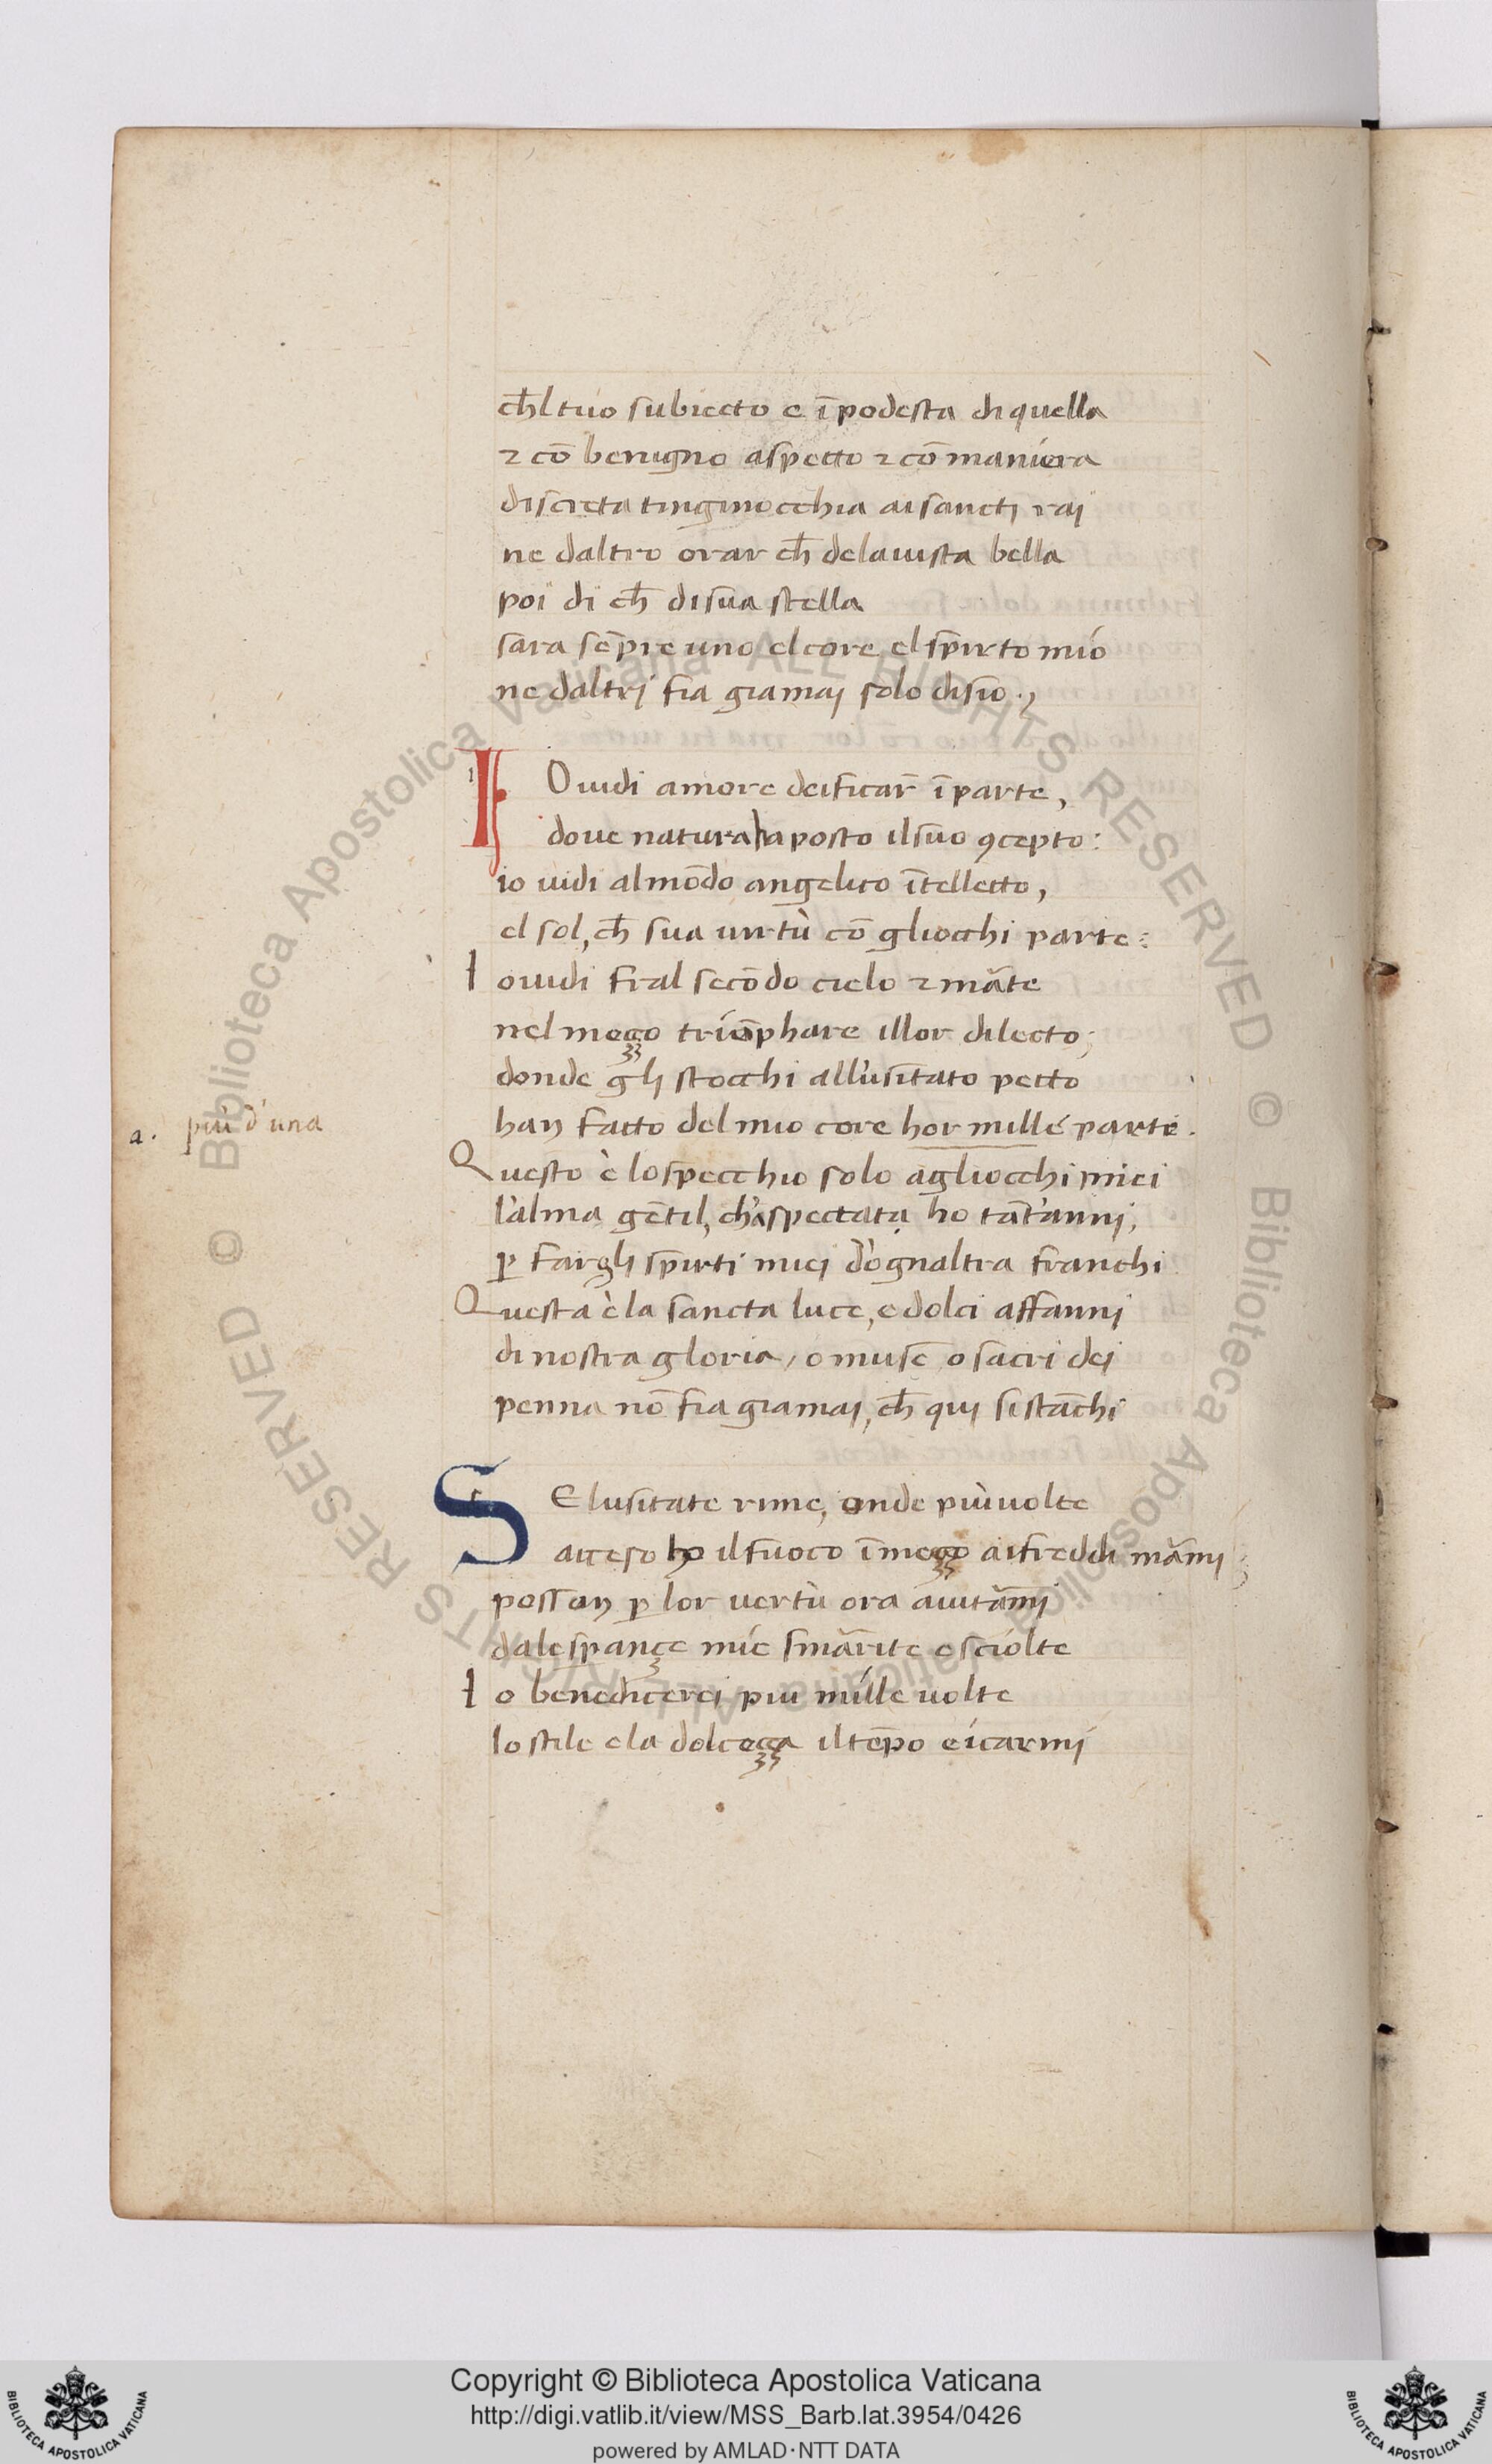 ch̄l tuo subiecto e ī podesta di quella
⁊ cō benigno aspetto ⁊ cō maniera
discreta tinginocchia ai sancti rai
ne daltro orar ch̄ dela uista bella
poi di ch̄ di sua stella
sara sēpre uno el core el sp̄irto mio
ne daltri fia giamai solo disio .,
IO uidi amore deificar̄ ī parte,
doue natura ha posto il suo ꝯcepto:
io uidi al mōdo angelico ītelletto,
el sol, ch̄ sua uirtù cō gliocchi parte:
Io uidi fral secōdo cielo ⁊ māte
nel mezzo triōphare il lor dilecto;
donde gli stocchi all'usitato petto
han fatto del mio core hor mille parte.
a. più d'una
Questo è lo specchio solo agliocchi miei
l'alma gētil, ch'aspectata ho tāt'anni,
ꝑ far gli sp̄irti miei d'ognaltra franchi
Questa è la sancta luce, e dolci affanni
di nostra gloria, o muse o sacri dei
penna nō fia giamai, ch̄ qui si stāchi
SE lusitate rime, onde più uolte
acceso ho il fuoco ī mezzo ai freddi mármi;
possan ꝑ lor uertù ora aiutármi
dale spançe mie smárrite e sciolte
Io benedicerei piu mille uolte
lo stile e la dolcezza il tēpo e i carmi
Biblioteca Apostolica Vaticana ALL RIGHTS RESERVED ©
Biblioteca Apostolica Vaticana ALL RIGHTS RESERVED ©
BIBLIOTECA APOSTOLICA VATICANA
Copyright © Biblioteca Apostolica Vaticana
http://digi.vatlib.it/view/MSS_Barb.lat.3954/0426
powered by AMLAD·NTT DATA
BIBLIOTECA APOSTOLICA VATICANA